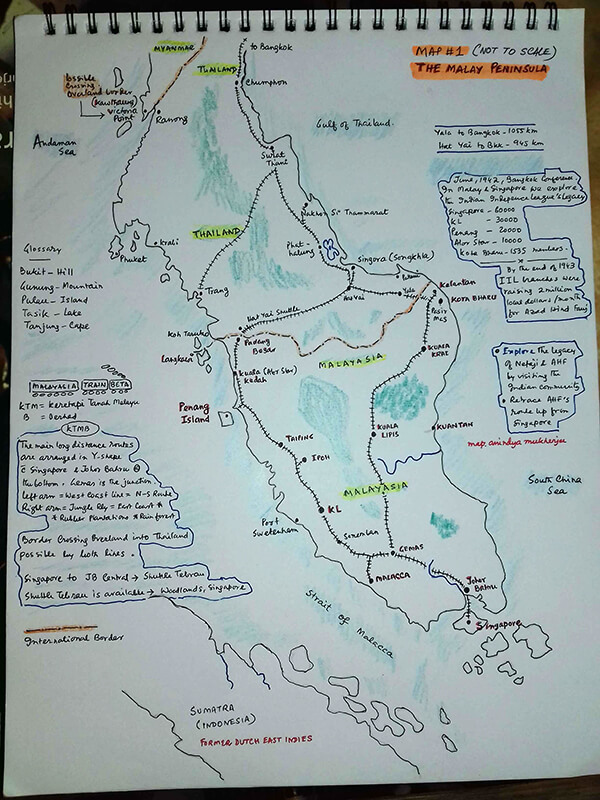 MAP #1 (NOT TO SCALE)
THE MALAY PENINSULA
to Bangkok
MYANMAR
THAILAND
Chumphon
Possible
Crossing
Overland border
(Kawthaung)
Victoria
Point
Ranong
Andaman
Sea
Gulf of Thailand
Yala to Bangkok - 1055 km
Hat Yai to Bkk - 945 km
Surat
Thani
June, 1942, Bangkok Conference
In Malay & Singapore we explore
the Indian Independence League's legacy
Singapore - 60000
KL - 30000
Penang - 20000
Alor Star - 10000
Kota Bharu - 1535 members.
By the end of 1943
IIL branches were
raising 2 million
local dollars/month
for Azad Hind Fauj
Nakhon Si Thammarat
THAILAND
Krabi
Phuket
Phat-
halung
Singora (Songkhla)
Trang
Hat Yai
Yala
Kelantan
KOTA BHARU
Pasir
Mas
Glossary
Bukit - Hill
Gunung - Mountain
Pulau - Island
Tasik - Lake
Tanjung - Cape
Hat Yai Shuttle
Koh Tarutao
Langkawi
Padang
Besar
MALAYASIA
KUALA
KRAI
Kuala (Alor Star)
Kedah
Explore the legacy
of Netaji & AHF
by visiting the
Indian community
Retrace AHF's
route up from
Singapore
MALAYASIA TRAIN BETA
KTM = Keretapa Tanah Melayu
B = Berhad
Penang
Island
KTMB
The main long distance routes
are arranged in Y-shape
c Singapore & Johor Bahru @
the bottom. Gemas is the junction.
Left arm = West Coast line = N-S Route
Right arm = Jungle Rly = East Coast *
* Rubber Plantations * Rainforest
Border Crossing Overland into Thailand
possible by both lines.
Singapore to JB Central → Shuttle Tebrau
Shuttle Tebrau is available → Woodlands, Singapore
TAIPING
IPOH
KUALA
LIPIS
KUANTAN
map: anindya mukherjee
South China
Sea
MALAYASIA
KL
Port
Swetenham
Seremban
GEMAS
MALACCA
Johor
Bahru
Singapore
Strait of Malacca
International Border
SUMATRA
(INDONESIA)
FORMER DUTCH EAST INDIES